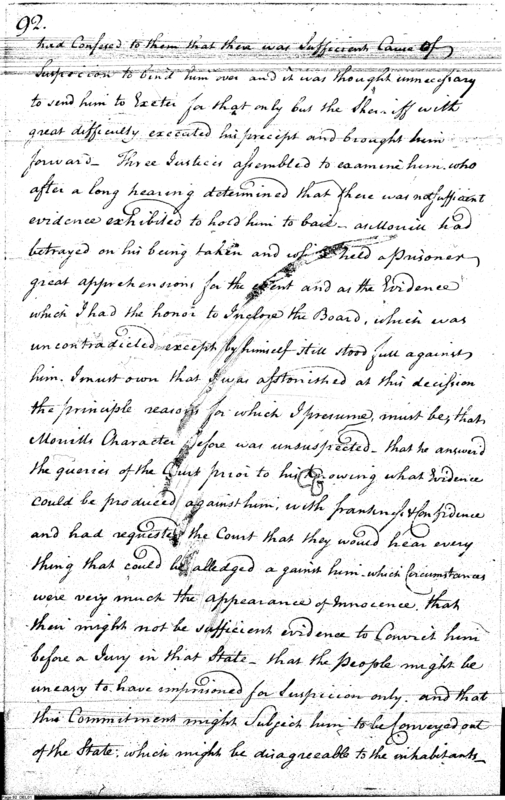 92.
had Confesed to them that there was Sufficient Cause of
Suspicion to bind him over and it was thought unnecessary
to send him to Exeter for that only but the Sherriff with
great difficulty executed his precept and brought him
forward_ Three Justices assembled to examine him, who
after a long hearing determined that there was not Sufficient
evidence exhibited to hold him to bail_ as Movill had
betrayed on his being taken and held a prisoner,
great apprehensions for the event and as the Evidence
which I had the honor to Inclose the Board, which was
uncontradicted except by himself still stood full against
him. I must own that I was astonished at this decision
the principle reasons for which I presume, must be, that
Movills Character before was unsuspected_ that he answerd
the queries of the Court prior to his knowing what Evidence
could be produced against him, with frankness & Confidence
and had requested the Court that they would hear every
thing that could be alledged against him, which Circumstances
were very much the appearance of Innocence, that
their might not be sufficient evidence to Convict him
before a Jury in that State_ that the people might be
uneasy to have imprisoned for Suspicion only, and that
this Commitment might Subject him to be Conveyed out
of the State, which might be disagreeable to the inhabitants_